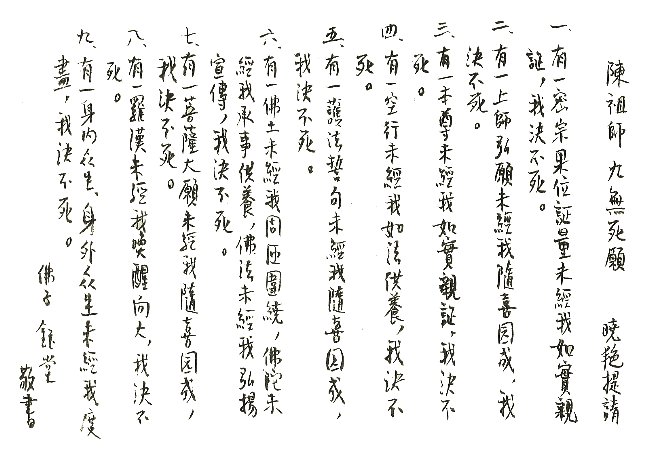 陳祖師九無死願　曉艳提請
一、有一密宗果位証量未經我如實親
証，我決不死。
二、有一上師弘願未經我隨喜圆成，我
決不死。
三、有一本尊未經我如實親証，我決不
死。
四、有一空行未經我如法供養，我決不
死。
五、有一護法誓句未經我隨喜圆成，
我決不死。
六、有一佛土未經我周匝圍繞，佛陀未
經我承事供養，佛法未經我弘揚
宣傳，我決不死。
七、有一菩薩大願未經我隨喜圆成，
我決不死。
八、有一羅漢未經我喚醒向大，我決不
死。
九、有一身內众生、身外众生未經我度
盡，我決不死。
佛子 鈺堂
敬書